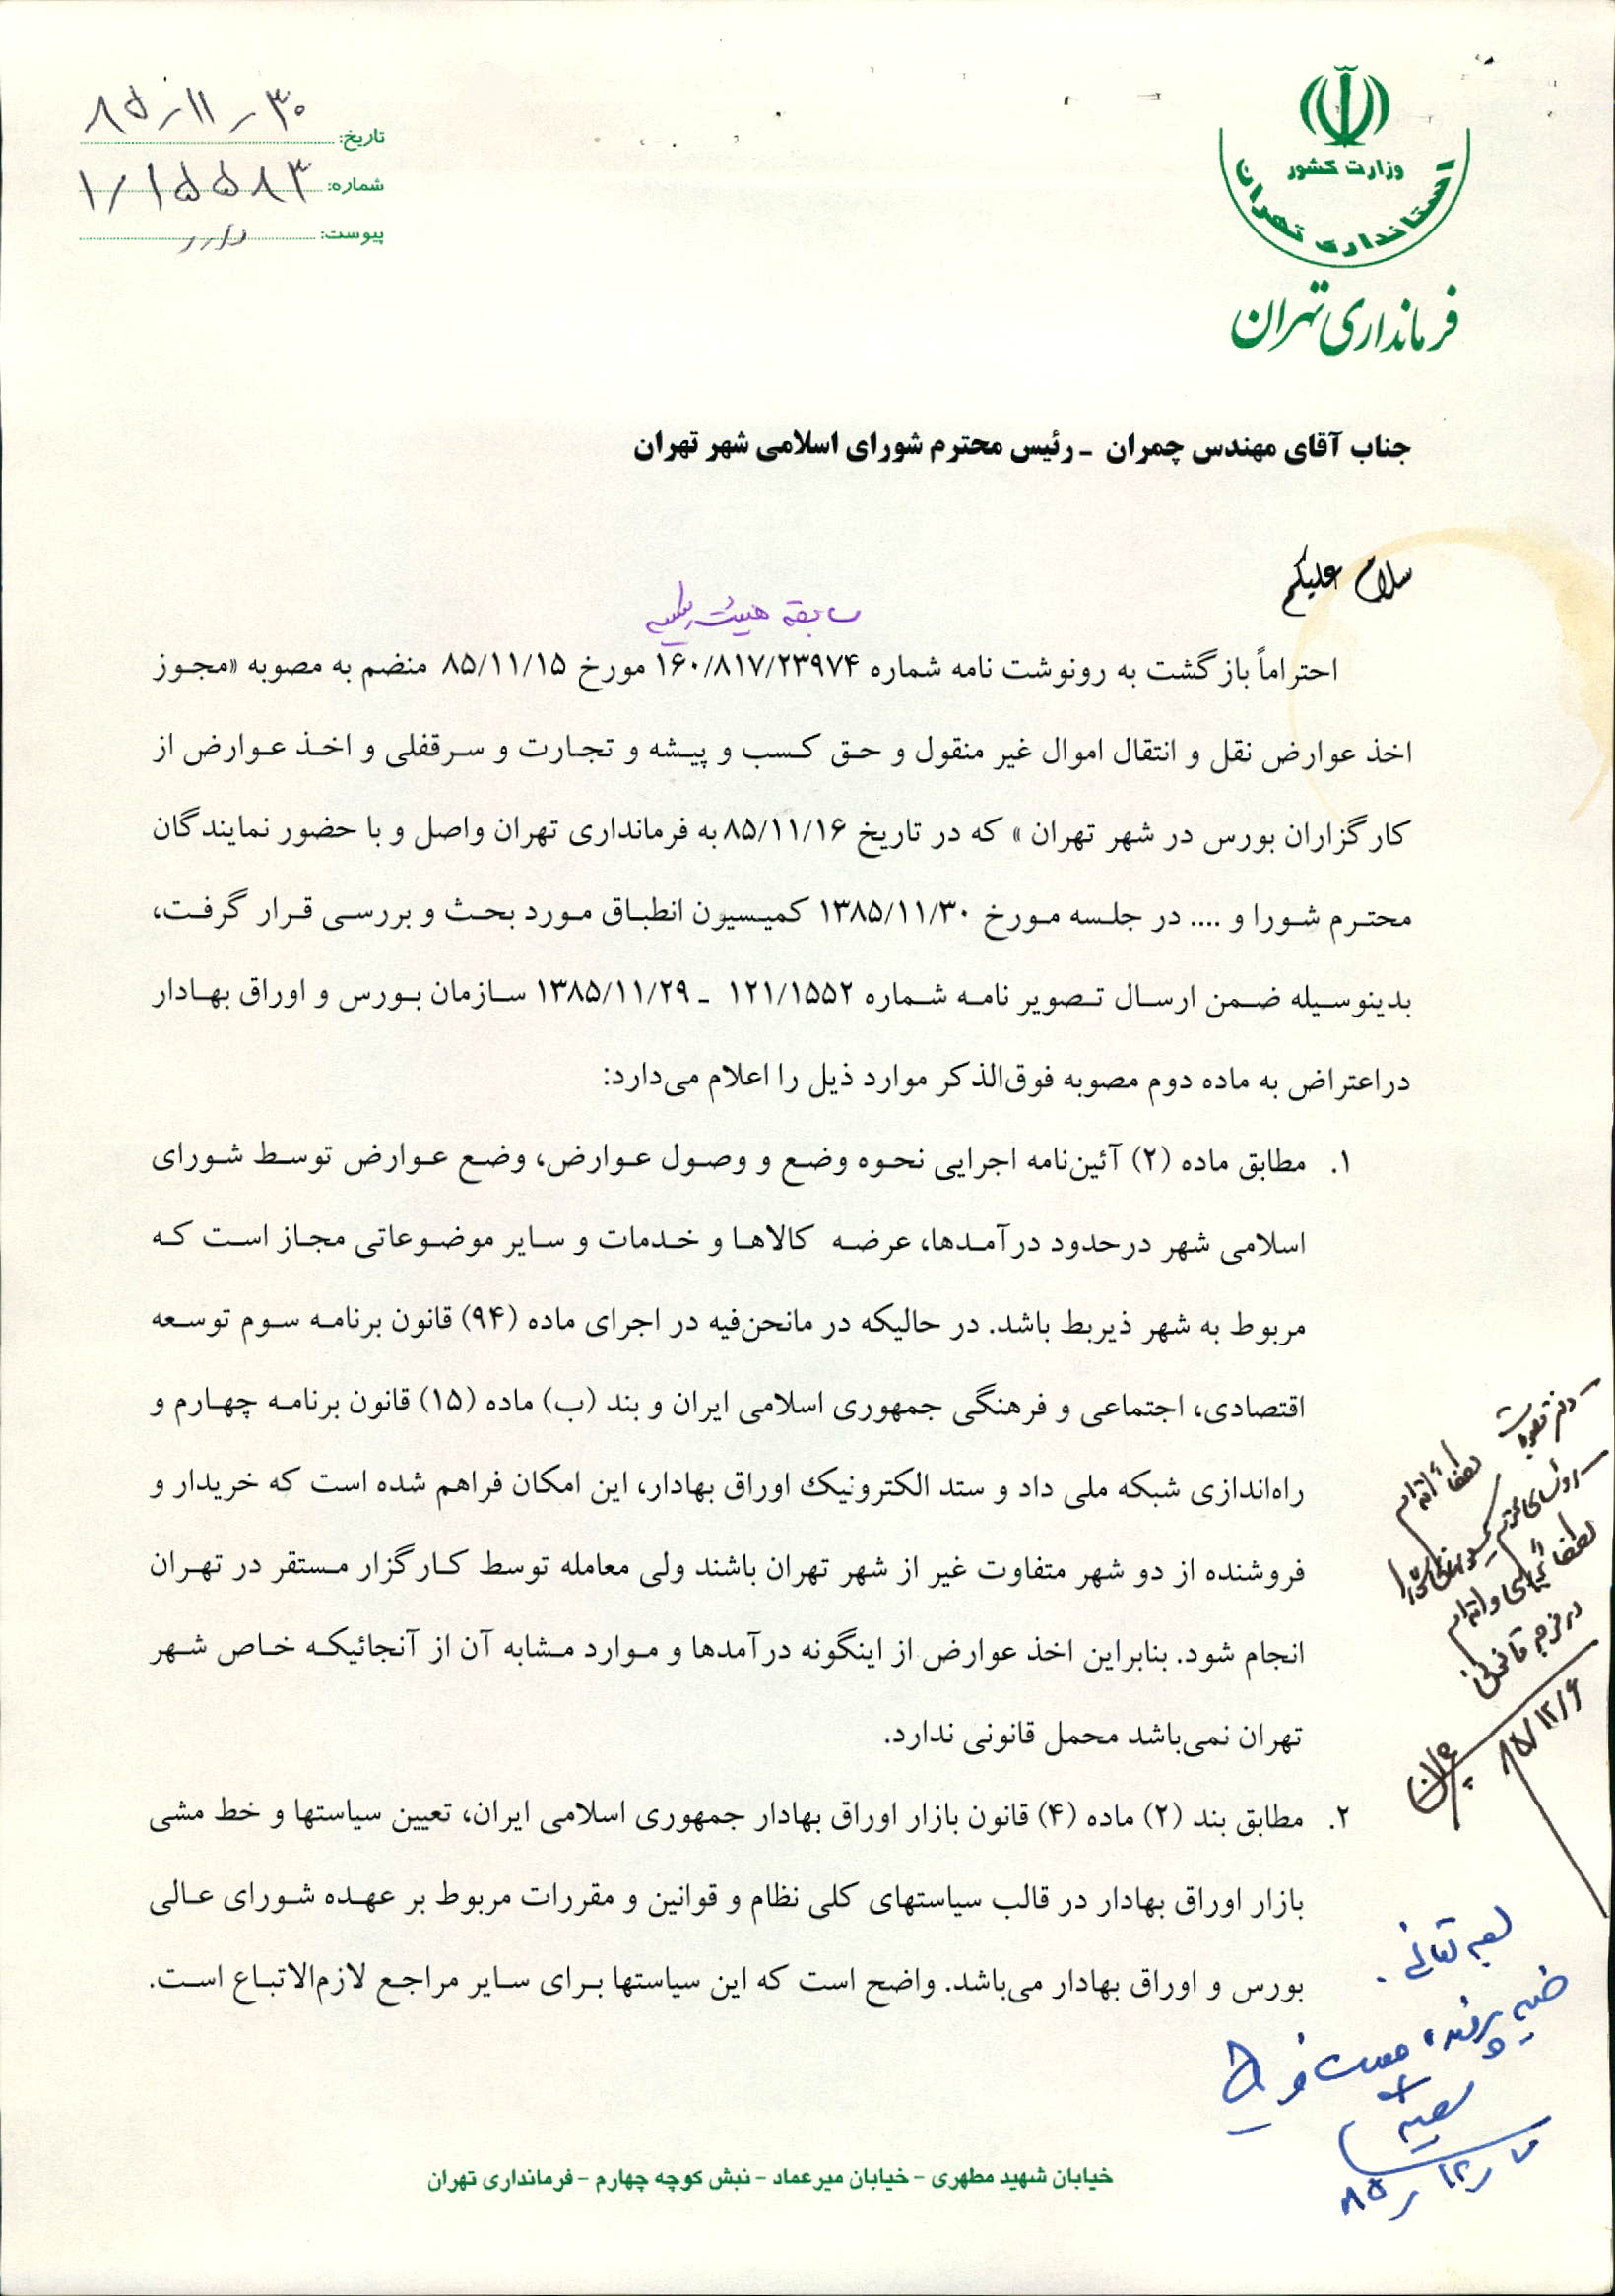 وزارت کشور
استانداری تهران
فرمانداری تهران
تاریخ: ۸۵-۱۱-۳۰
شماره: ۱/۱۵۵۸۳
پیوست: دارد
جناب آقای مهندس چمران - رئیس محترم شورای اسلامی شهر تهران
سلام علیکم
سابقه هیئت رئیسه
احتراماً بازگشت به رونوشت نامه شماره ۱۶۰/۸۱۷/۲۳۹۷۴ مورخ ۸۵/۱۱/۱۵ منضم به مصوبه «مجوز
اخذ عوارض نقل و انتقال اموال غیر منقول و حق کسب و پیشه و تجارت و سرقفلی و اخذ عوارض از
کارگزاران بورس در شهر تهران » که در تاریخ ۸۵/۱۱/۱۶ به فرمانداری تهران واصل و با حضور نمایندگان
محترم شورا و .... در جلسه مورخ ۱۳۸۵/۱۱/۳۰ کمیسیون انطباق مورد بحث و بررسی قرار گرفت،
بدینوسیله ضمن ارسال تصویر نامه شماره ۱۲۱/۱۵۵۲ - ۱۳۸۵/۱۱/۲۹ سازمان بورس و اوراق بهادار
دراعتراض به ماده دوم مصوبه فوق‌الذکر موارد ذیل را اعلام می‌دارد:
۱. مطابق ماده (۲) آئین‌نامه اجرایی نحوه وضع و وصول عوارض، وضع عوارض توسط شورای
اسلامی شهر درحدود درآمدها، عرضه کالاها و خدمات و سایر موضوعاتی مجاز است که
مربوط به شهر ذیربط باشد. در حالیکه در مانحن‌فیه در اجرای ماده (۹۴) قانون برنامه سوم توسعه
اقتصادی، اجتماعی و فرهنگی جمهوری اسلامی ایران و بند (ب) ماده (۱۵) قانون برنامه چهارم و
راه‌اندازی شبکه ملی داد و ستد الکترونیک اوراق بهادار، این امکان فراهم شده است که خریدار و
فروشنده از دو شهر متفاوت غیر از شهر تهران باشند ولی معامله توسط کارگزار مستقر در تهران
انجام شود. بنابراین اخذ عوارض از اینگونه درآمدها و موارد مشابه آن از آنجائیکه خاص شهر
تهران نمی‌باشد محمل قانونی ندارد.
۲. مطابق بند (۲) ماده (۴) قانون بازار اوراق بهادار جمهوری اسلامی ایران، تعیین سیاستها و خط مشی
بازار اوراق بهادار در قالب سیاستهای کلی نظام و قوانین و مقررات مربوط بر عهده شورای عالی
بورس و اوراق بهادار می‌باشد. واضح است که این سیاستها برای سایر مراجع لازم‌الاتباع است.
- دفتر مصوبات لطفاً اقدام
- روسای محترم
لطفاً و اقدام
در فرجه قانونی
چمران
۸۵/۱۲/۶
بسمه تعالی
ضمیمه پرونده
۸۵/۱۲/۷
خیابان شهید مطهری - خیابان میرعماد - نبش کوچه چهارم - فرمانداری تهران